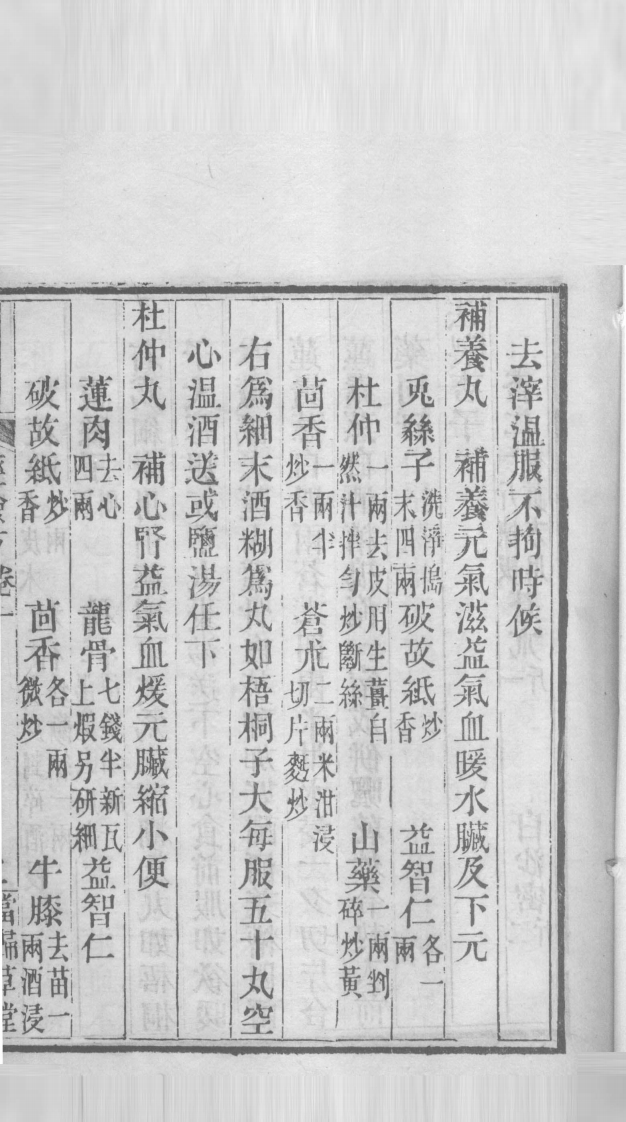 去滓溫服不拘時候
補養丸　補養元氣滋益氣血暖水臟及下元
兎絲子洗淨搗末四兩破故紙炒香　益智仁各一兩
杜仲一兩去皮用生薑自然汁拌勻炒斷絲　山藥一兩剉碎炒黃
茴香一兩半炒香　蒼朮二兩米泔浸切片麩炒
右爲細末酒糊爲丸如梧桐子大每服五十丸空
心温酒送或鹽湯任下
杜仲丸　補心腎益氣血煖元臟縮小便
蓮肉去心四兩　龍骨七錢半新瓦上煆另研細益智仁
破故紙炒香　茴香各一兩微炒　牛膝去苗一兩酒浸
卷一